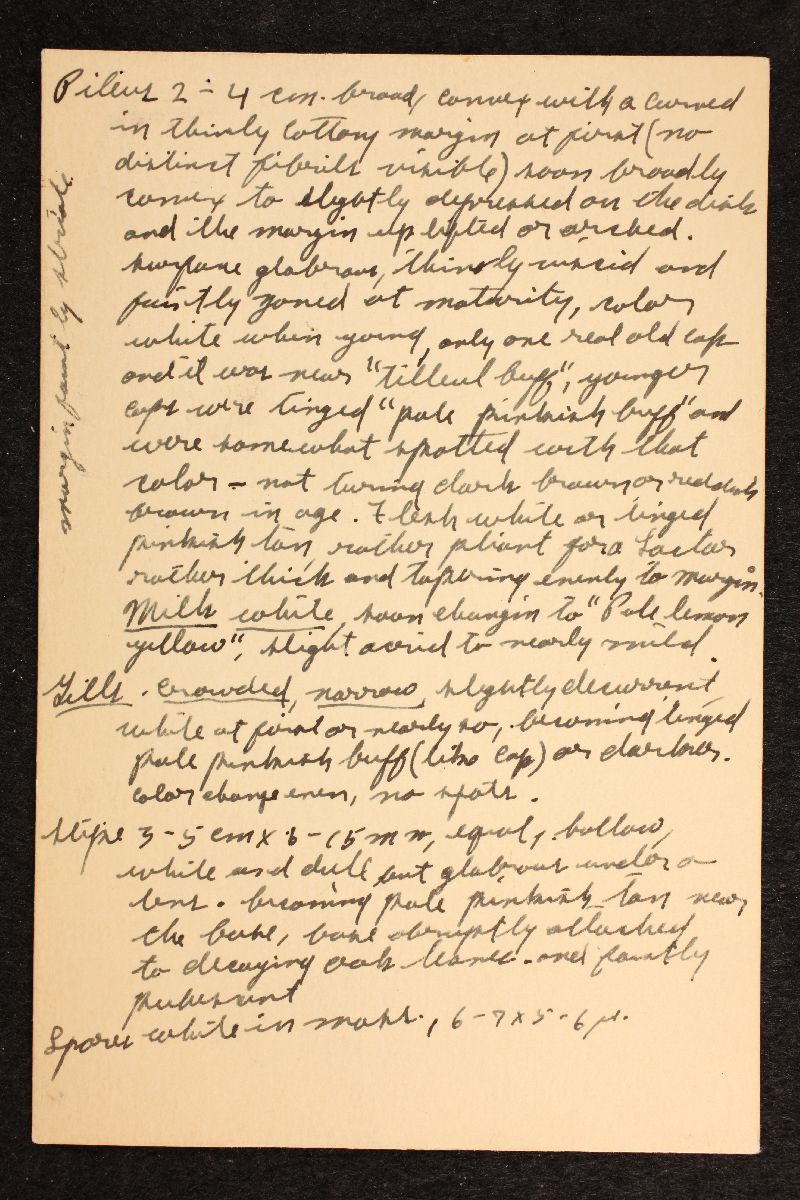 Pileus 2-4 cm. broad, convex with a curved
in thinly cottony margin at first (no
distinct fibrils visible) soon broadly
convex to slightly depressed on the disk
and the margin uplifted or arched.
surface glabrous, thinly viscid and
faintly zoned at maturity, color
white when young, only one real old cap
and it was near "tilleul buff", younger
caps were tinged "pale pinkish buff" and
were somewhat spotted with that
color - not turing dark brown or reddish
brown in age. Flesh white or tinged
pinkish tan rather pliant for a Lactar
rather thick and tapering evenly to margin.
Milk white, soon changin to "Pale lemon
yellow", slight acrid to nearly mild.
Gills. crowded, narrow, slightly decurrent
white at first or nearly so, becoming tinged
pale pinkish buff (like cap) or darker.
color change even, no spots.
Stipe 3-5 cm x 8-15 mm, equal, hollow,
white and dull but glabrous under a
lens. becoming pale pinkish tan near
the base, base abruptly attached
to decaying oak leaves - and faintly
pubescent
Spores white in mass., 6-7 x 5-6 µ.
margin faintly striate